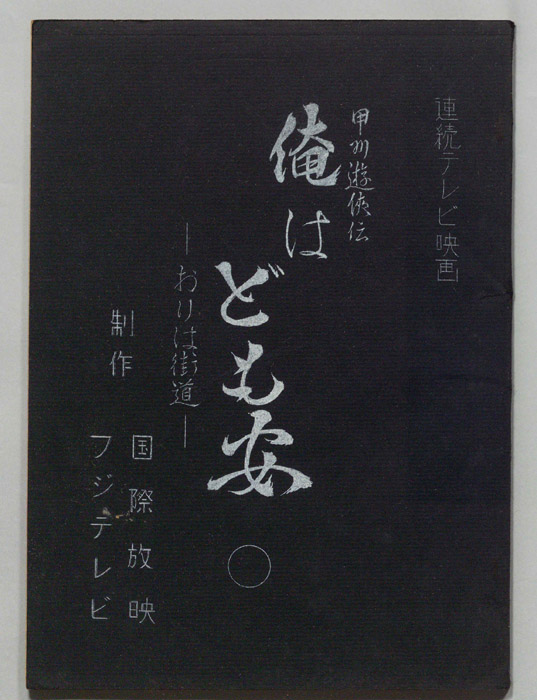 連続テレビ映画
甲州遊侠伝
俺はども安
―おりは街道―
制作
国際放映
フジテレビ